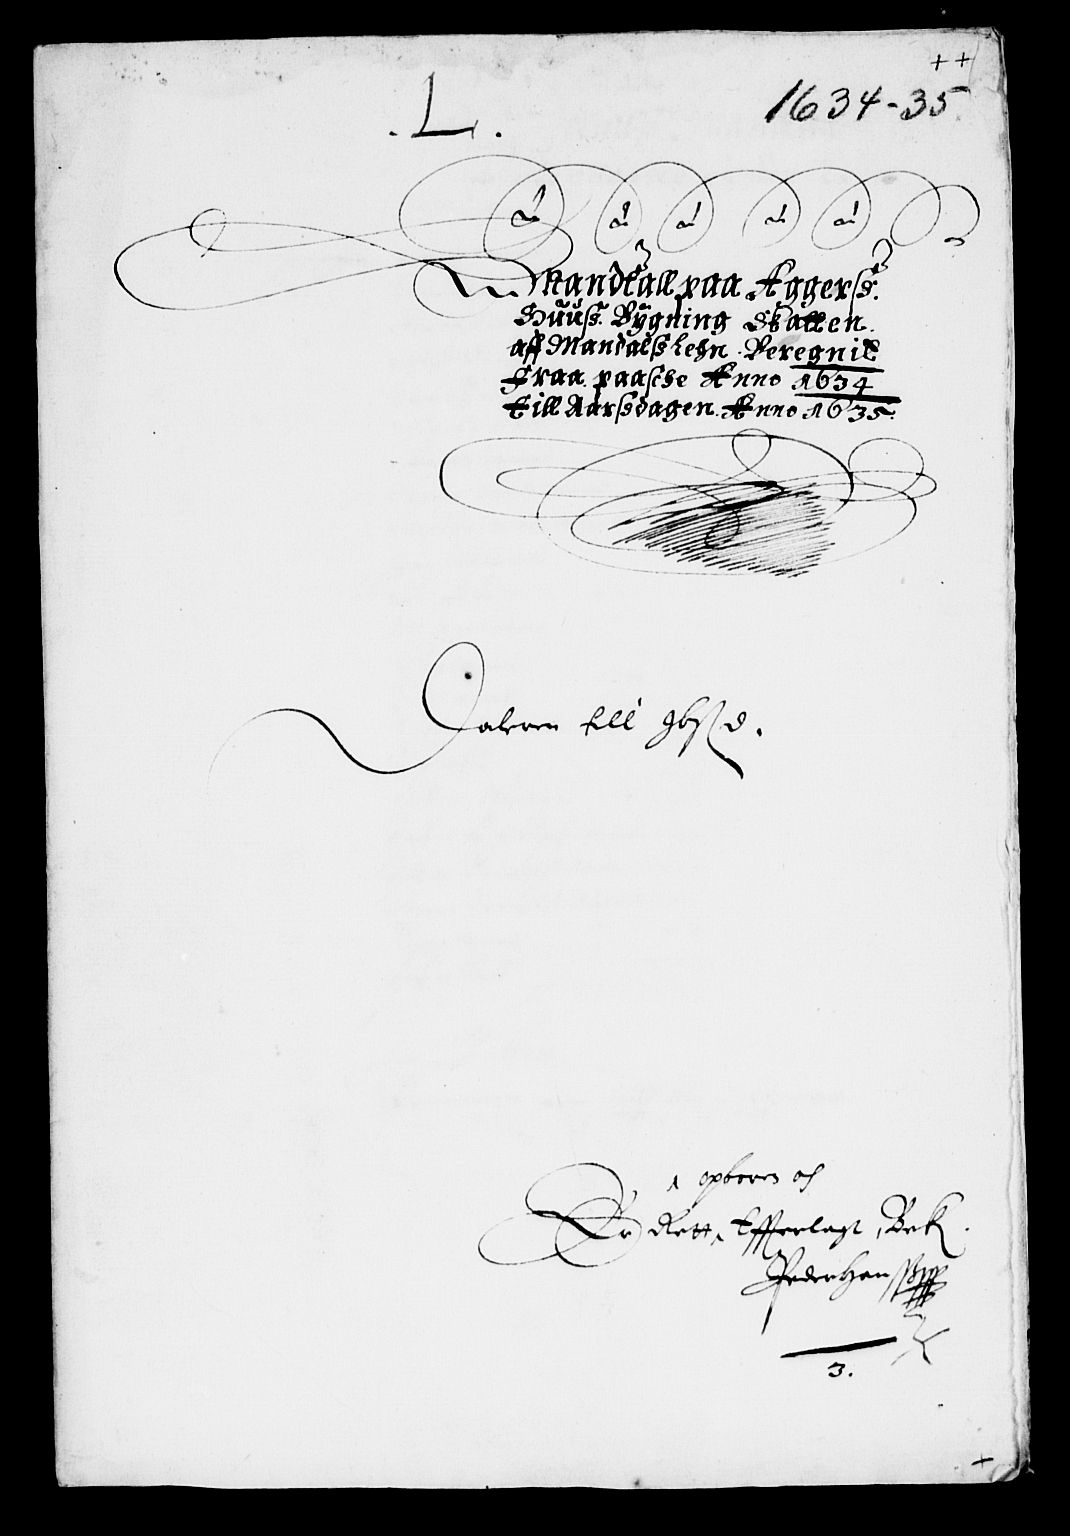 ++
.L.
1634-35
Mandtall paa Aggerss
Huuss Bygning Skatten
aff Mandals Lehn Beregnit
Fraa paasche Anno 1634
till Aarssdagen Anno 1635.
Daleren till
opboren och
Er Rett Effterlagt
Peder Hanss
3.
+